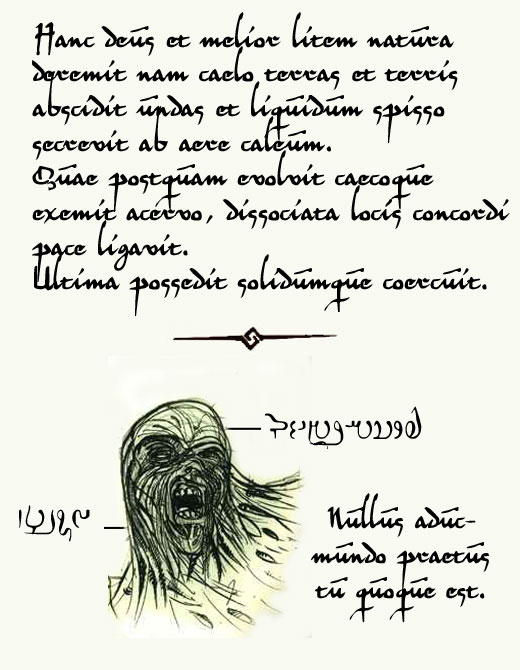 Hanc deus et melior litem natura
deremit nam caelo terras et terris
abscidit undas et liquidum spisso
secrevit ab aere caleum.
Quae postquam evolvit caecoque
exemit acervo, dissociata locis concordi
pace ligavit.
Ultima possedit solidumque coercuit.
Nullus aduc-
mundo praetus
tu quoque est.